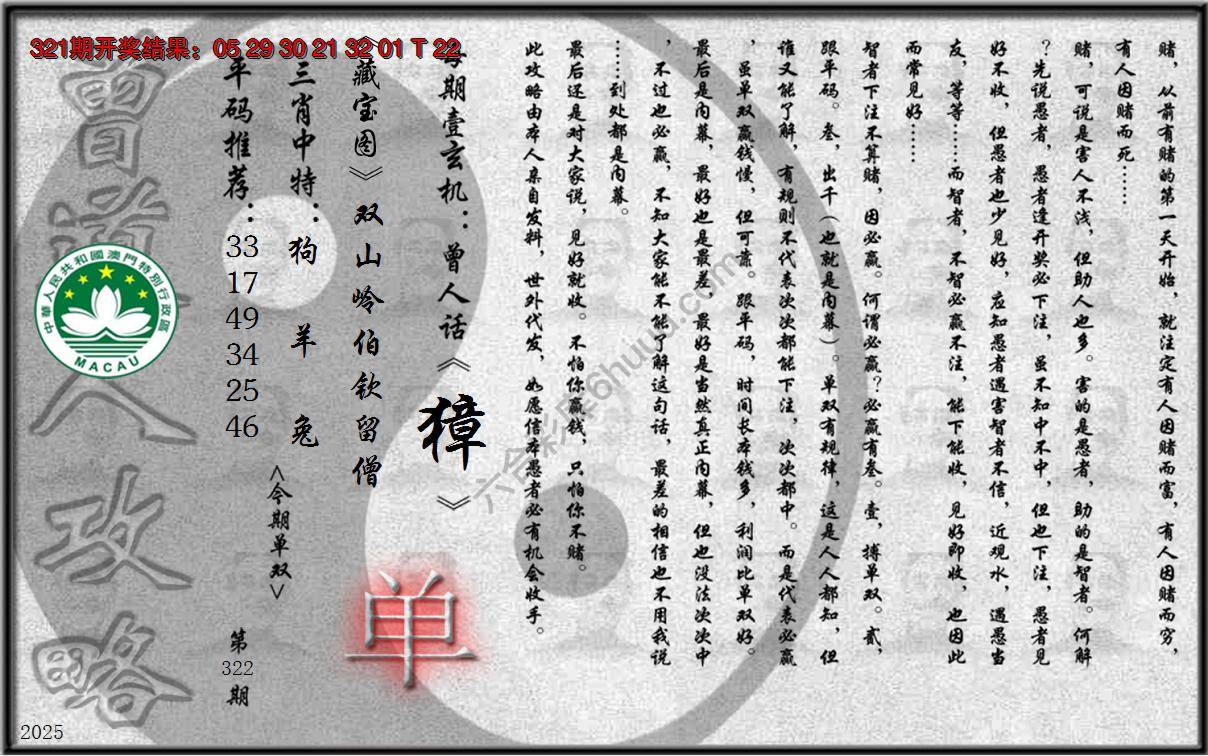 321期开奖结果：05 29 30 21 32 01 T 22
赌，从前有赌的第一天开始，就注定有人因赌而富，有人因赌而穷，
有人因赌而死……
赌，可说是害人不浅，但助人也多。害的是愚者，助的是智者。何解
？先说愚者，愚者逢开奖必下注，虽不知中不中，但也下注，愚者见
好不收，但愚者也少见好，应知愚者遇害智者不信，近观水，遇愚当
友，等等……而智者，不智必赢不注，能下能收，见好即收，也因此
而常见好……
智者下注不算赌，因必赢。何谓必赢？必赢有叁。壹，搏单双。贰，
跟平码。叁，出千（也就是内幕）。单双有规律，这是人人都知，但
谁又能了解，有规则不代表次次都能下注，次次都中。而是代表必赢
，虽单双赢钱慢，但可靠。跟平码，时间长本钱多，利润比单双好。
最后是内幕，最好也是最差，最好是当然真正内幕，但也没法次次中
，不过也必赢，不知大家能不能了解这句话，最差的相信也不用我说
……到处都是内幕。
最后还是对大家说，见好就收。不怕你赢钱，只怕你不赌。
此攻略由本人亲自发料，世外代发，如愿信本愚者必有机会收手。
每期壹玄机：曾人话《獐》
《藏宝图》双山岭伯钦留僧
三肖中特：狗 羊 兔
平码推荐：33 17 49 34 25 46
<今期单双>
单
第322期
曾道人攻略
中華人民共和國澳門特別行政區
MACAU
六合彩库6huuu.com
2025